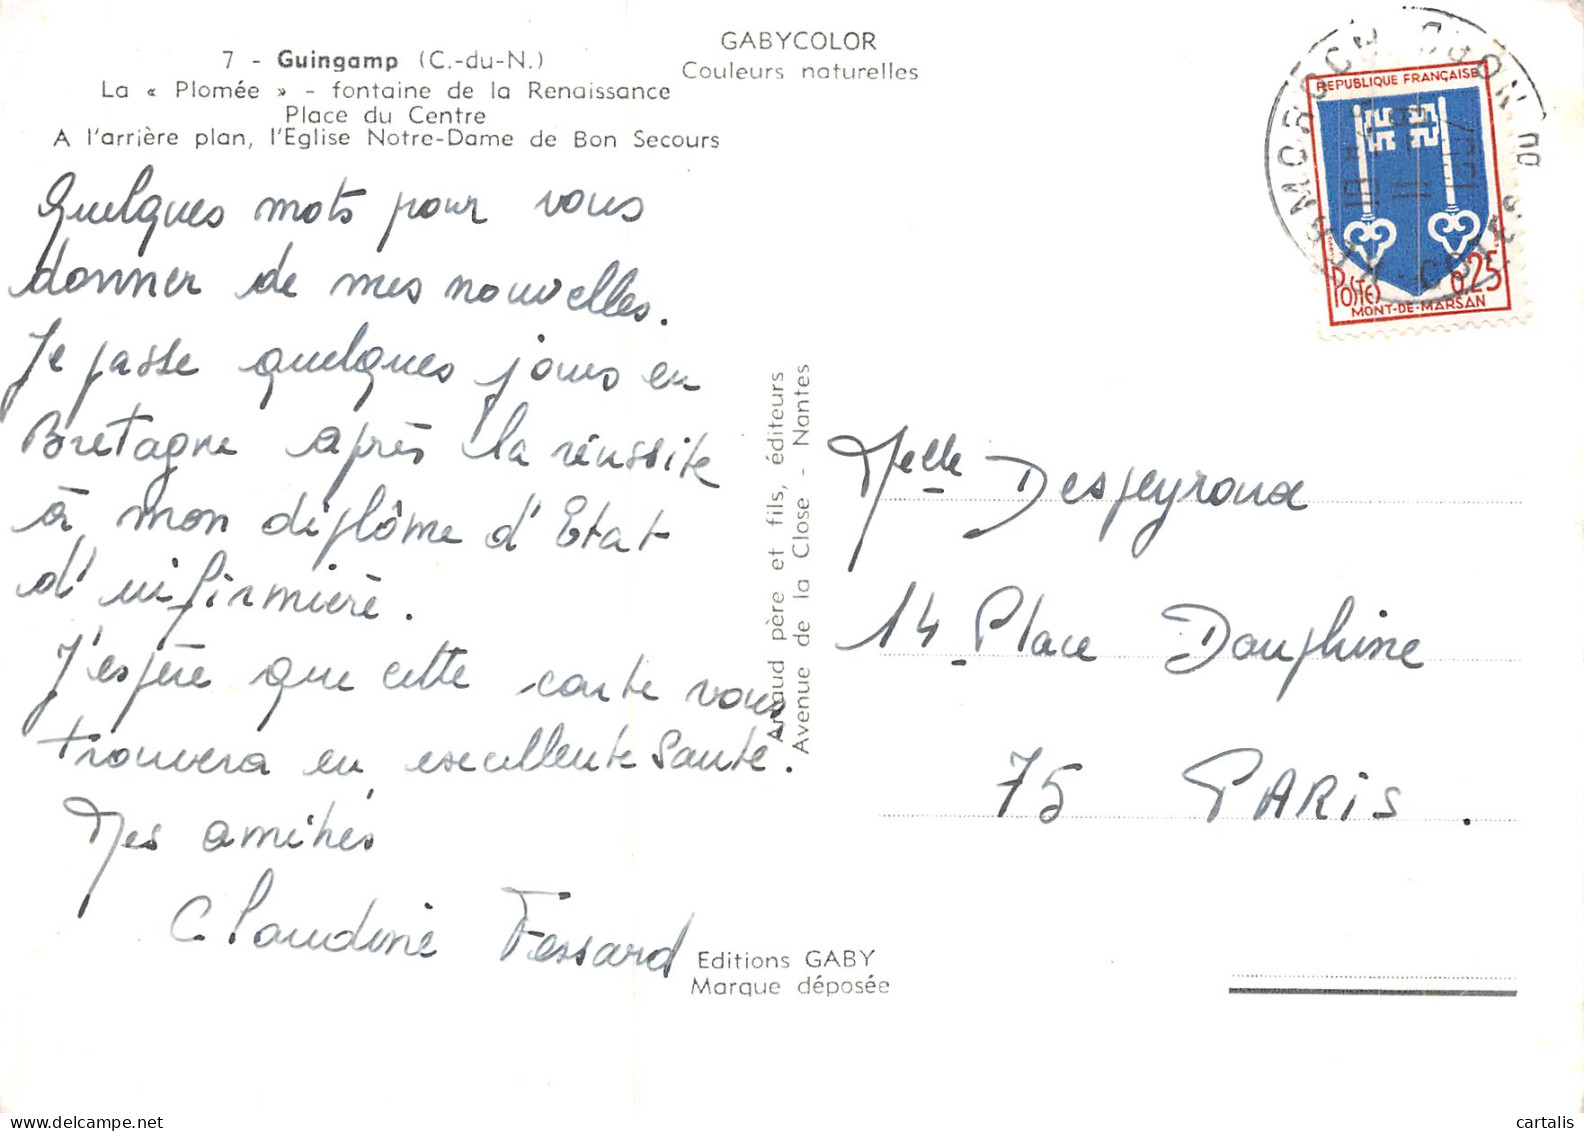 7 - Guingamp (C.-du-N.)
La « Plomée » - fontaine de la Renaissance
Place du Centre
A l'arrière plan, l'Eglise Notre-Dame de Bon Secours
GABYCOLOR
Couleurs naturelles
Quelques mots pour vous
donner de mes nouvelles.
Je passe quelques jours en
Bretagne après la réussite
à mon diplôme d'Etat
d'infirmière.
J'espère que cette carte vous
trouvera en excellente santé.
Mes amitiés
Claudine Fessard
Arnaud père et fils, éditeurs
Avenue de la Close - Nantes
Editions GABY
Marque déposée
REPUBLIQUE FRANÇAISE
POSTES 0,25
MONT-DE-MARSAN
Melle Despeyroux
14 Place Dauphine
75 PARIS.
cartalis